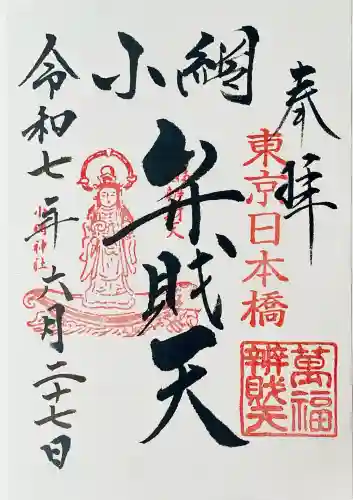 奉拝
東京日本橋
萬福
辨財天
小網
弁財天
小網神社
令和七年六月二十七日